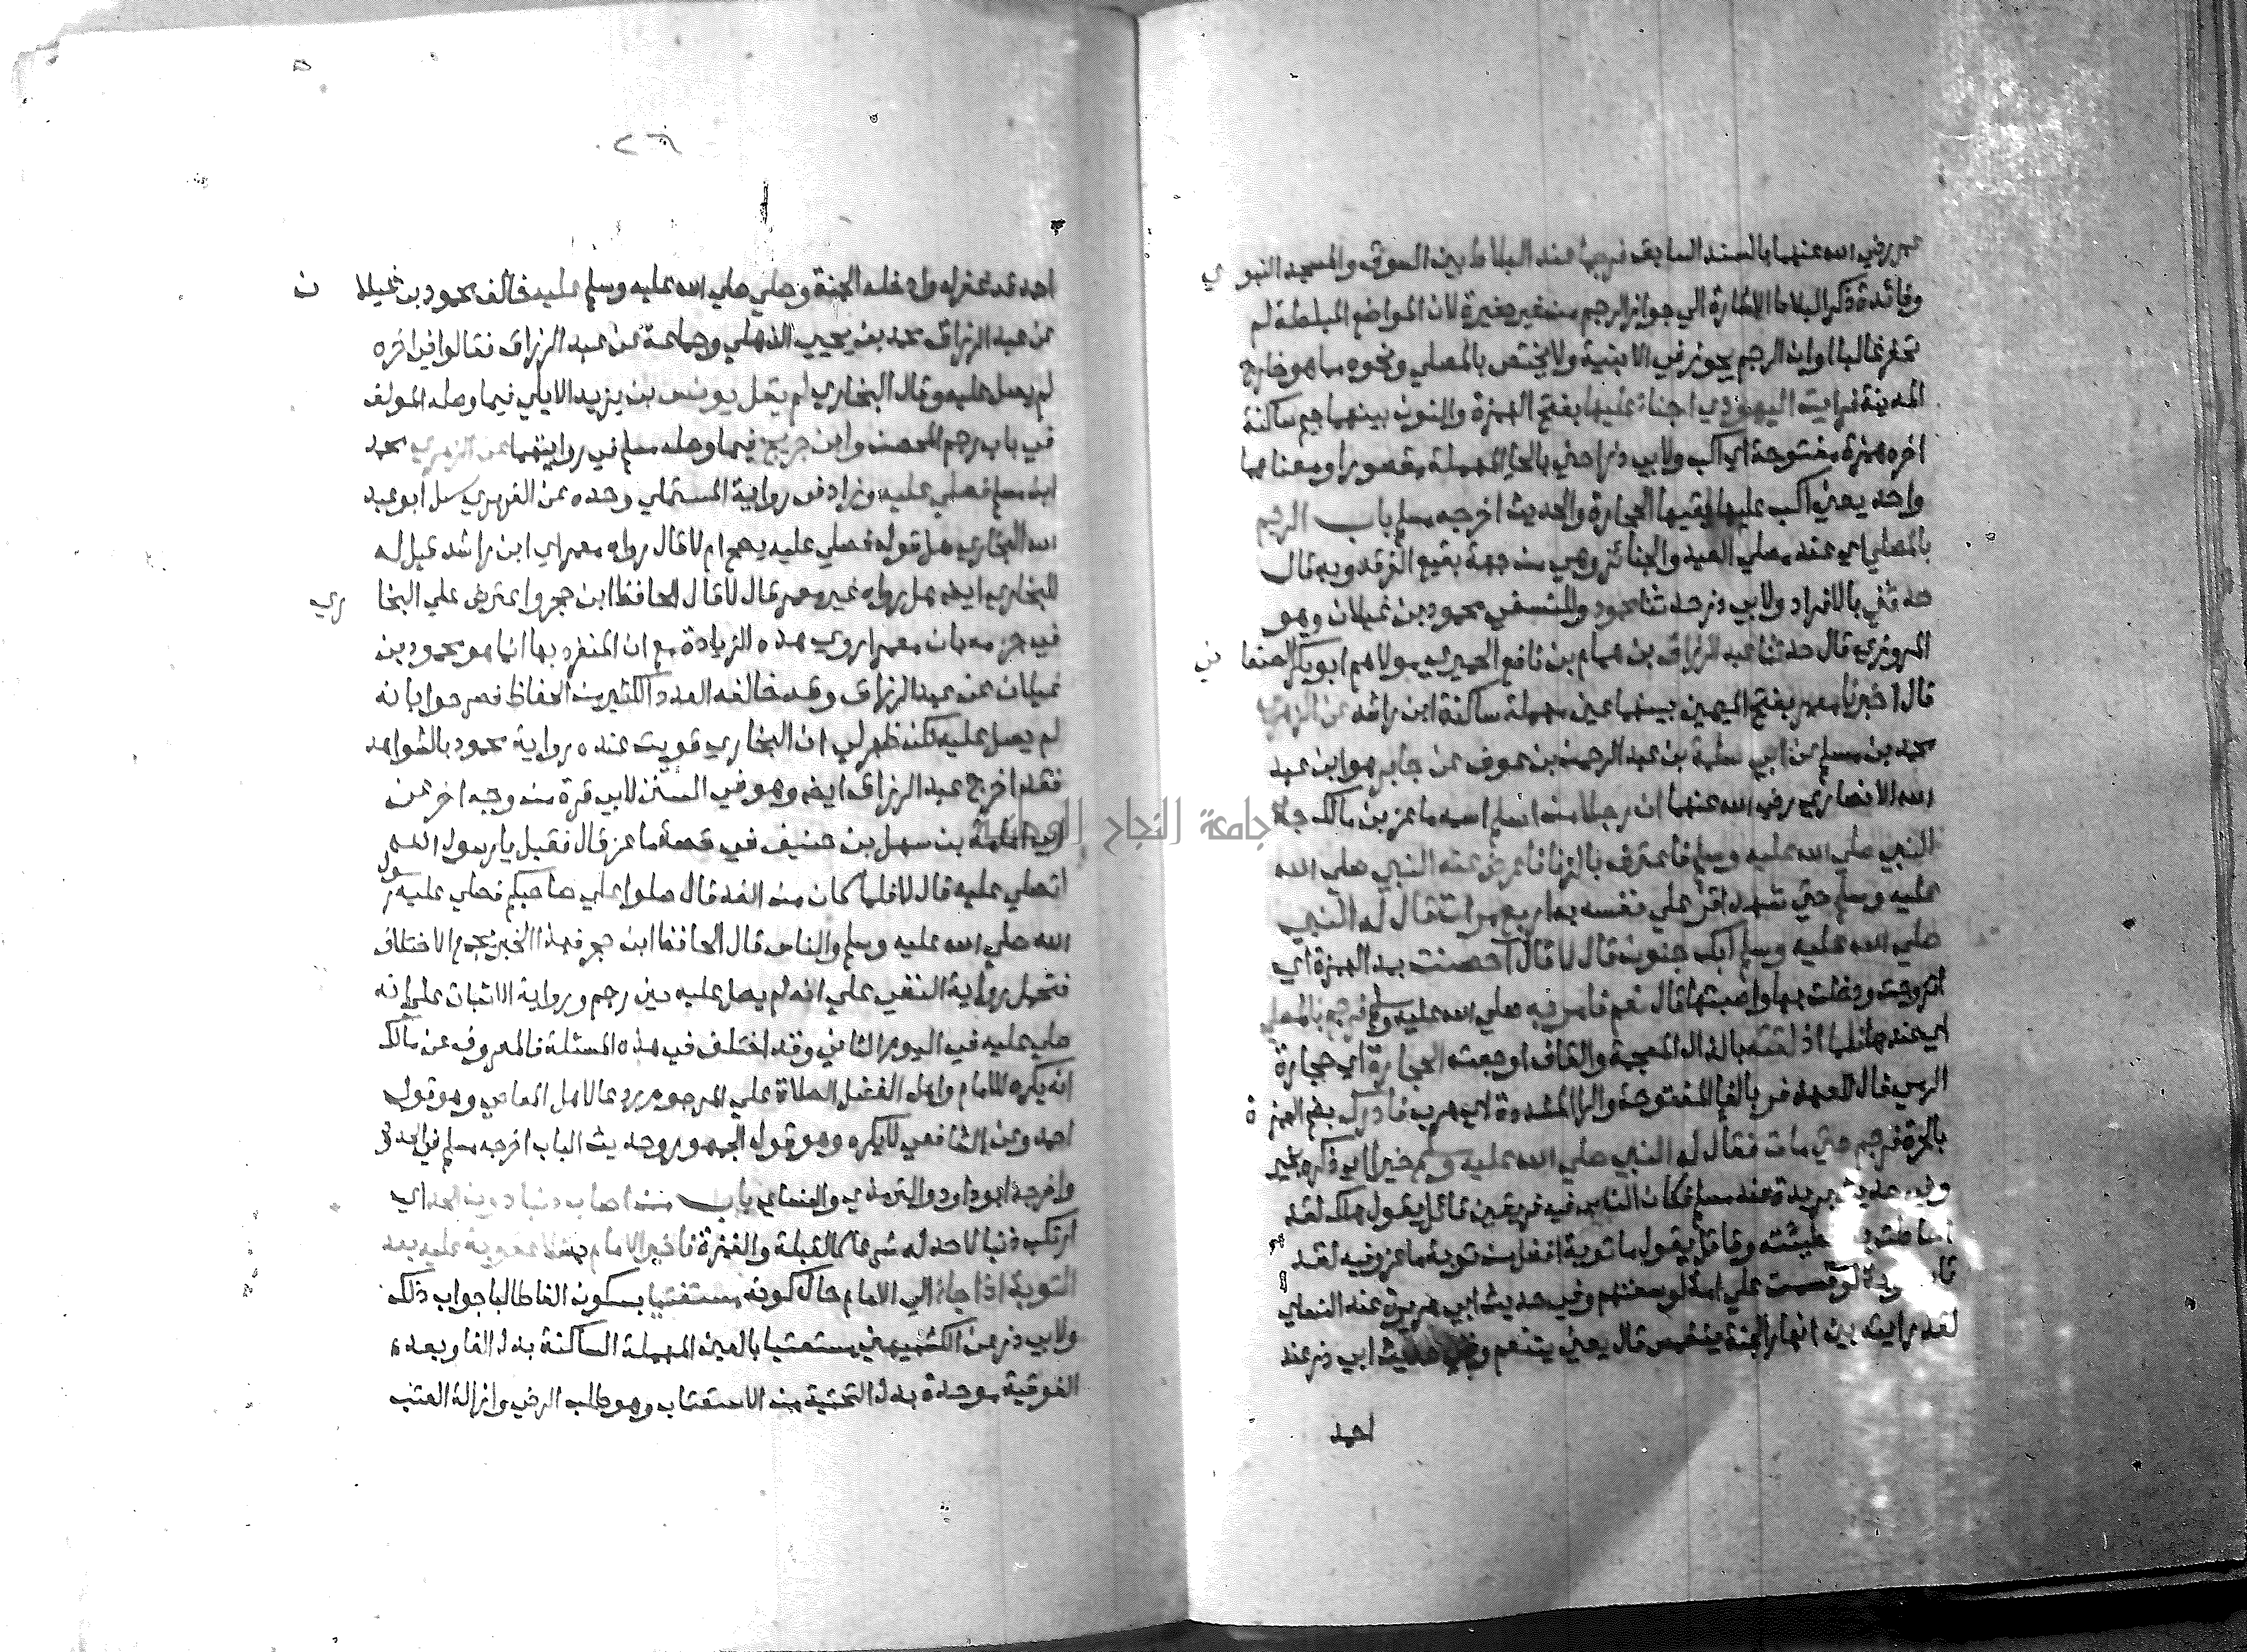 عمر رضي الله عنهما بالسند السابق فرجما عند البلاط بين السوق والمسجد النبوي
وفائدة ذكر البلاط الاشارة الي جواز الرجم من غير حفيرة لان المواضع المبلطة لم
تحفر غالبا اوان الرجم يجوز في الابنية ولا يختص بالمصلي ونحوه مما هو خارج
المدينة فرايت اليهودي اجنا عليها بفتح الهمزة والنون بينهما جيم ساكنة
اخره همزة مفتوحة اي اكب ولابي ذر احني بالحا المهملة مقصورا ومعناهما
واحد يعني اكب عليها يقيها الحجارة والحديث اخرجه مسلم باب الرجم
بالمصلي اي عند مصلي العيد والجنائز وهي من جهة بقيع الغرقد وبه قال
حدثني بالافراد ولابي ذر حدثنا محمود وللنسفي محمود بن غيلان وهو
المروزي قال حدثنا عبد الرزاق بن همام بن نافع الحميري مولاهم ابو بكر الصنعاني
قال اخبرنا معمر بفتح الميمين بينهما عين مهملة ساكنة ابن راشد عن الزهري
محمد بن مسلم عن ابي سلمة بن عبد الرحمن بن عوف عن جابر هو ابن عبد
الله الانصاري رضي الله عنهما ان رجلا من اسلم اسمه ماعز بن مالك جا
النبي صلي الله عليه وسلم فاعترف بالزنا فاعرض عنه النبي صلي الله
عليه وسلم حتي شهد اقر علي نفسه به اربع مرات قال له النبي
صلي الله عليه وسلم ابك جنون قال لا قال آحصنت بمد الهمزة اي
اتزوجت ودخلت بها واصبتها قال نعم فامر به صلي الله عليه وسلم فرجم بالمصلي
اي عندها فلما اذلقته بالذال المعجمة والقاف اوجعته الحجارة اي حجارة
الرمي فال للعهد فر بالفا المفتوحة والرا المشددة اي هرب فادرك بضم الهمزة
بالحرة فرجم حتي مات فقال له النبي صلي الله عليه وسلم خيرا اي ذكره بخير
وفي حديث بريدة عند مسلم فكان الناس فيه فريقين قائل يقول هلك لقد
احاطت به خطيئته وقائل يقول ما توبة افضل من توبة ماعز وفيه لقد
لو قسمت علي امة لوسعتهم وفي حديث ابي هريرة عند النساي
لقد رايته بين انهار الجنة ينغمس قال يعني يتنعم وفي حديث ابي ذر عند
احمد
٢٦٠
احمد قد غفر له وادخله الجنة وصلي صلي الله عليه وسلم عليه خالف محمود بن غيلان
عن عبد الرزاق محمد بن يحيي الذهلي وجماعة عن عبد الرزاق فقالوا في اخره
لم يصل عليه وقال البخاري لم يقل يونس بن يزيد الايلي فيما وصله المولف
في باب رجم المحصن وابن جريج فيما وصله مسلم في روايتهما عن الزهري محمد
ابن مسلم فصلي عليه وزاد في رواية المستملي وحده عن الفربري سئل ابو عبد
الله البخاري هل قوله فصلي عليه يصح ام لا قال رواه معمر اي ابن راشد قيل له
للبخاري ايضا هل رواه غير معمر قال لا قال الحافظ ابن حجر واعترض علي البخاري
في جزمه بان معمرا روي هذه الزيادة مع ان المنفرد بها انما هو محمود بن
غيلان عن عبد الرزاق وقد خالفه العدد الكثير من الحفاظ فصرحوا بانه
لم يصل عليه لكن ظهر لي ان البخاري قويت عنده رواية محمود بالشواهد
فقد اخرج عبد الرزاق ايضا وهو في السنن لابي قرة من وجه اخر عن
ابي امامة بن سهل بن حنيف في قصة ماعز قال فقيل يا رسول الله
اتصلي عليه قال لا فلما كان من الغد قال صلوا علي صاحبكم فصلي عليه رسول
الله صلي الله عليه وسلم والناس قال الحافظ ابن حجر فهذا الخبر يجمع الاختلاف
فتحمل رواية النفي علي انه لم يصل عليه حين رجم ورواية الاثبات علي انه
صلي عليه في اليوم الثاني وقد اختلف في هذه المسئلة فالمعروف عن مالك
انه يكره للامام واهل الفضل الصلاة علي المرجوم ردعا لاهل المعاصي وهو قول
احمد وعن الشافعي لا يكره وهو قول الجمهور وحديث الباب اخرجه مسلم في الحدود
واخرجه ابو داود والترمذي والنساي باب من اصاب ذنبا دون الحد اي
ارتكب ذنبا لا حد له شرعا كالقبلة والغمزة فاخبر الامام به فلا عقوبة عليه بعد
التوبة اذا جا الي الامام حال كونه مستفتيا بسكون الفا طالبا جواب ذلك
ولابي ذر عن الكشميهني مستعتبا بالعين المهملة الساكنة بدل الفا وبعد
الفوقية موحدة بدل التحتية من الاستعتاب وهو طلب الرضي وازالة العتب